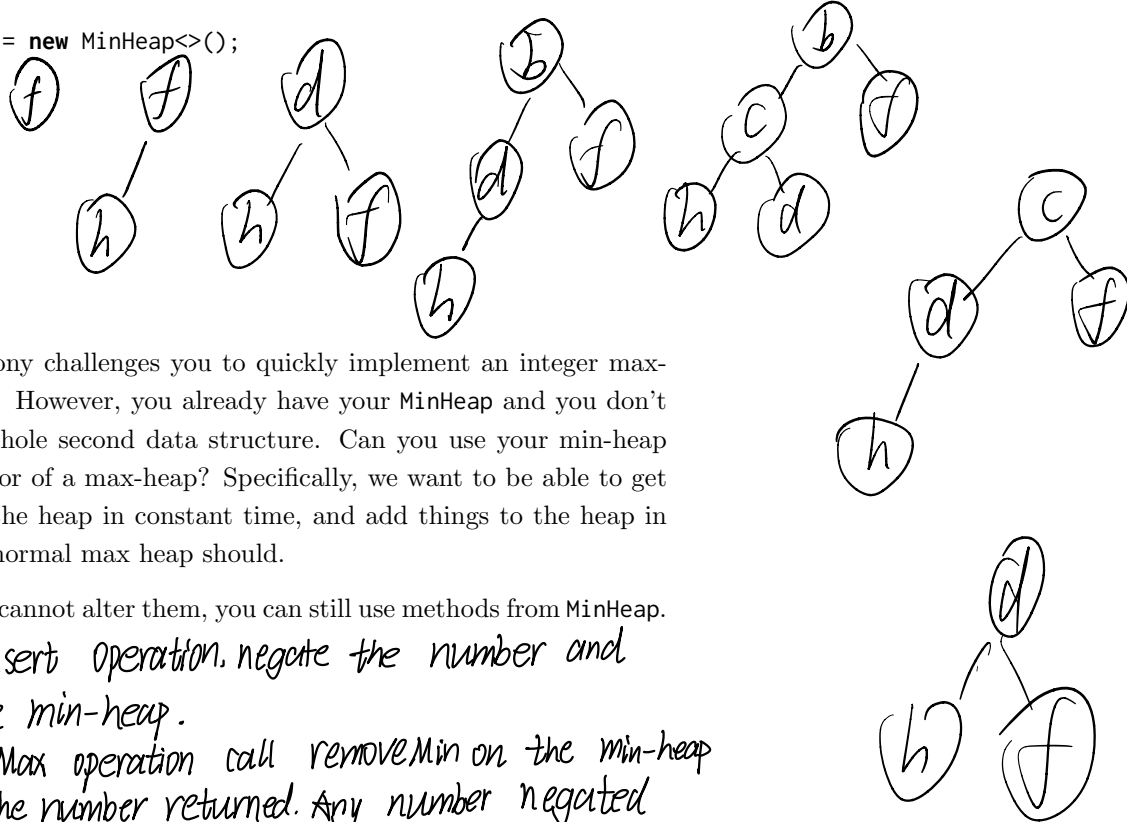 = new MinHeap<>();
f f d b b
h h f d f c f
h h d
c
d f
h
ony challenges you to quickly implement an integer max-
However, you already have your MinHeap and you don't
hole second data structure. Can you use your min-heap
or of a max-heap? Specifically, we want to be able to get
he heap in constant time, and add things to the heap in
normal max heap should.
cannot alter them, you can still use methods from MinHeap.
d
h f
sert operation, negate the number and
e min-heap.
Max operation call removeMin on the min-heap
he number returned. Any number negated